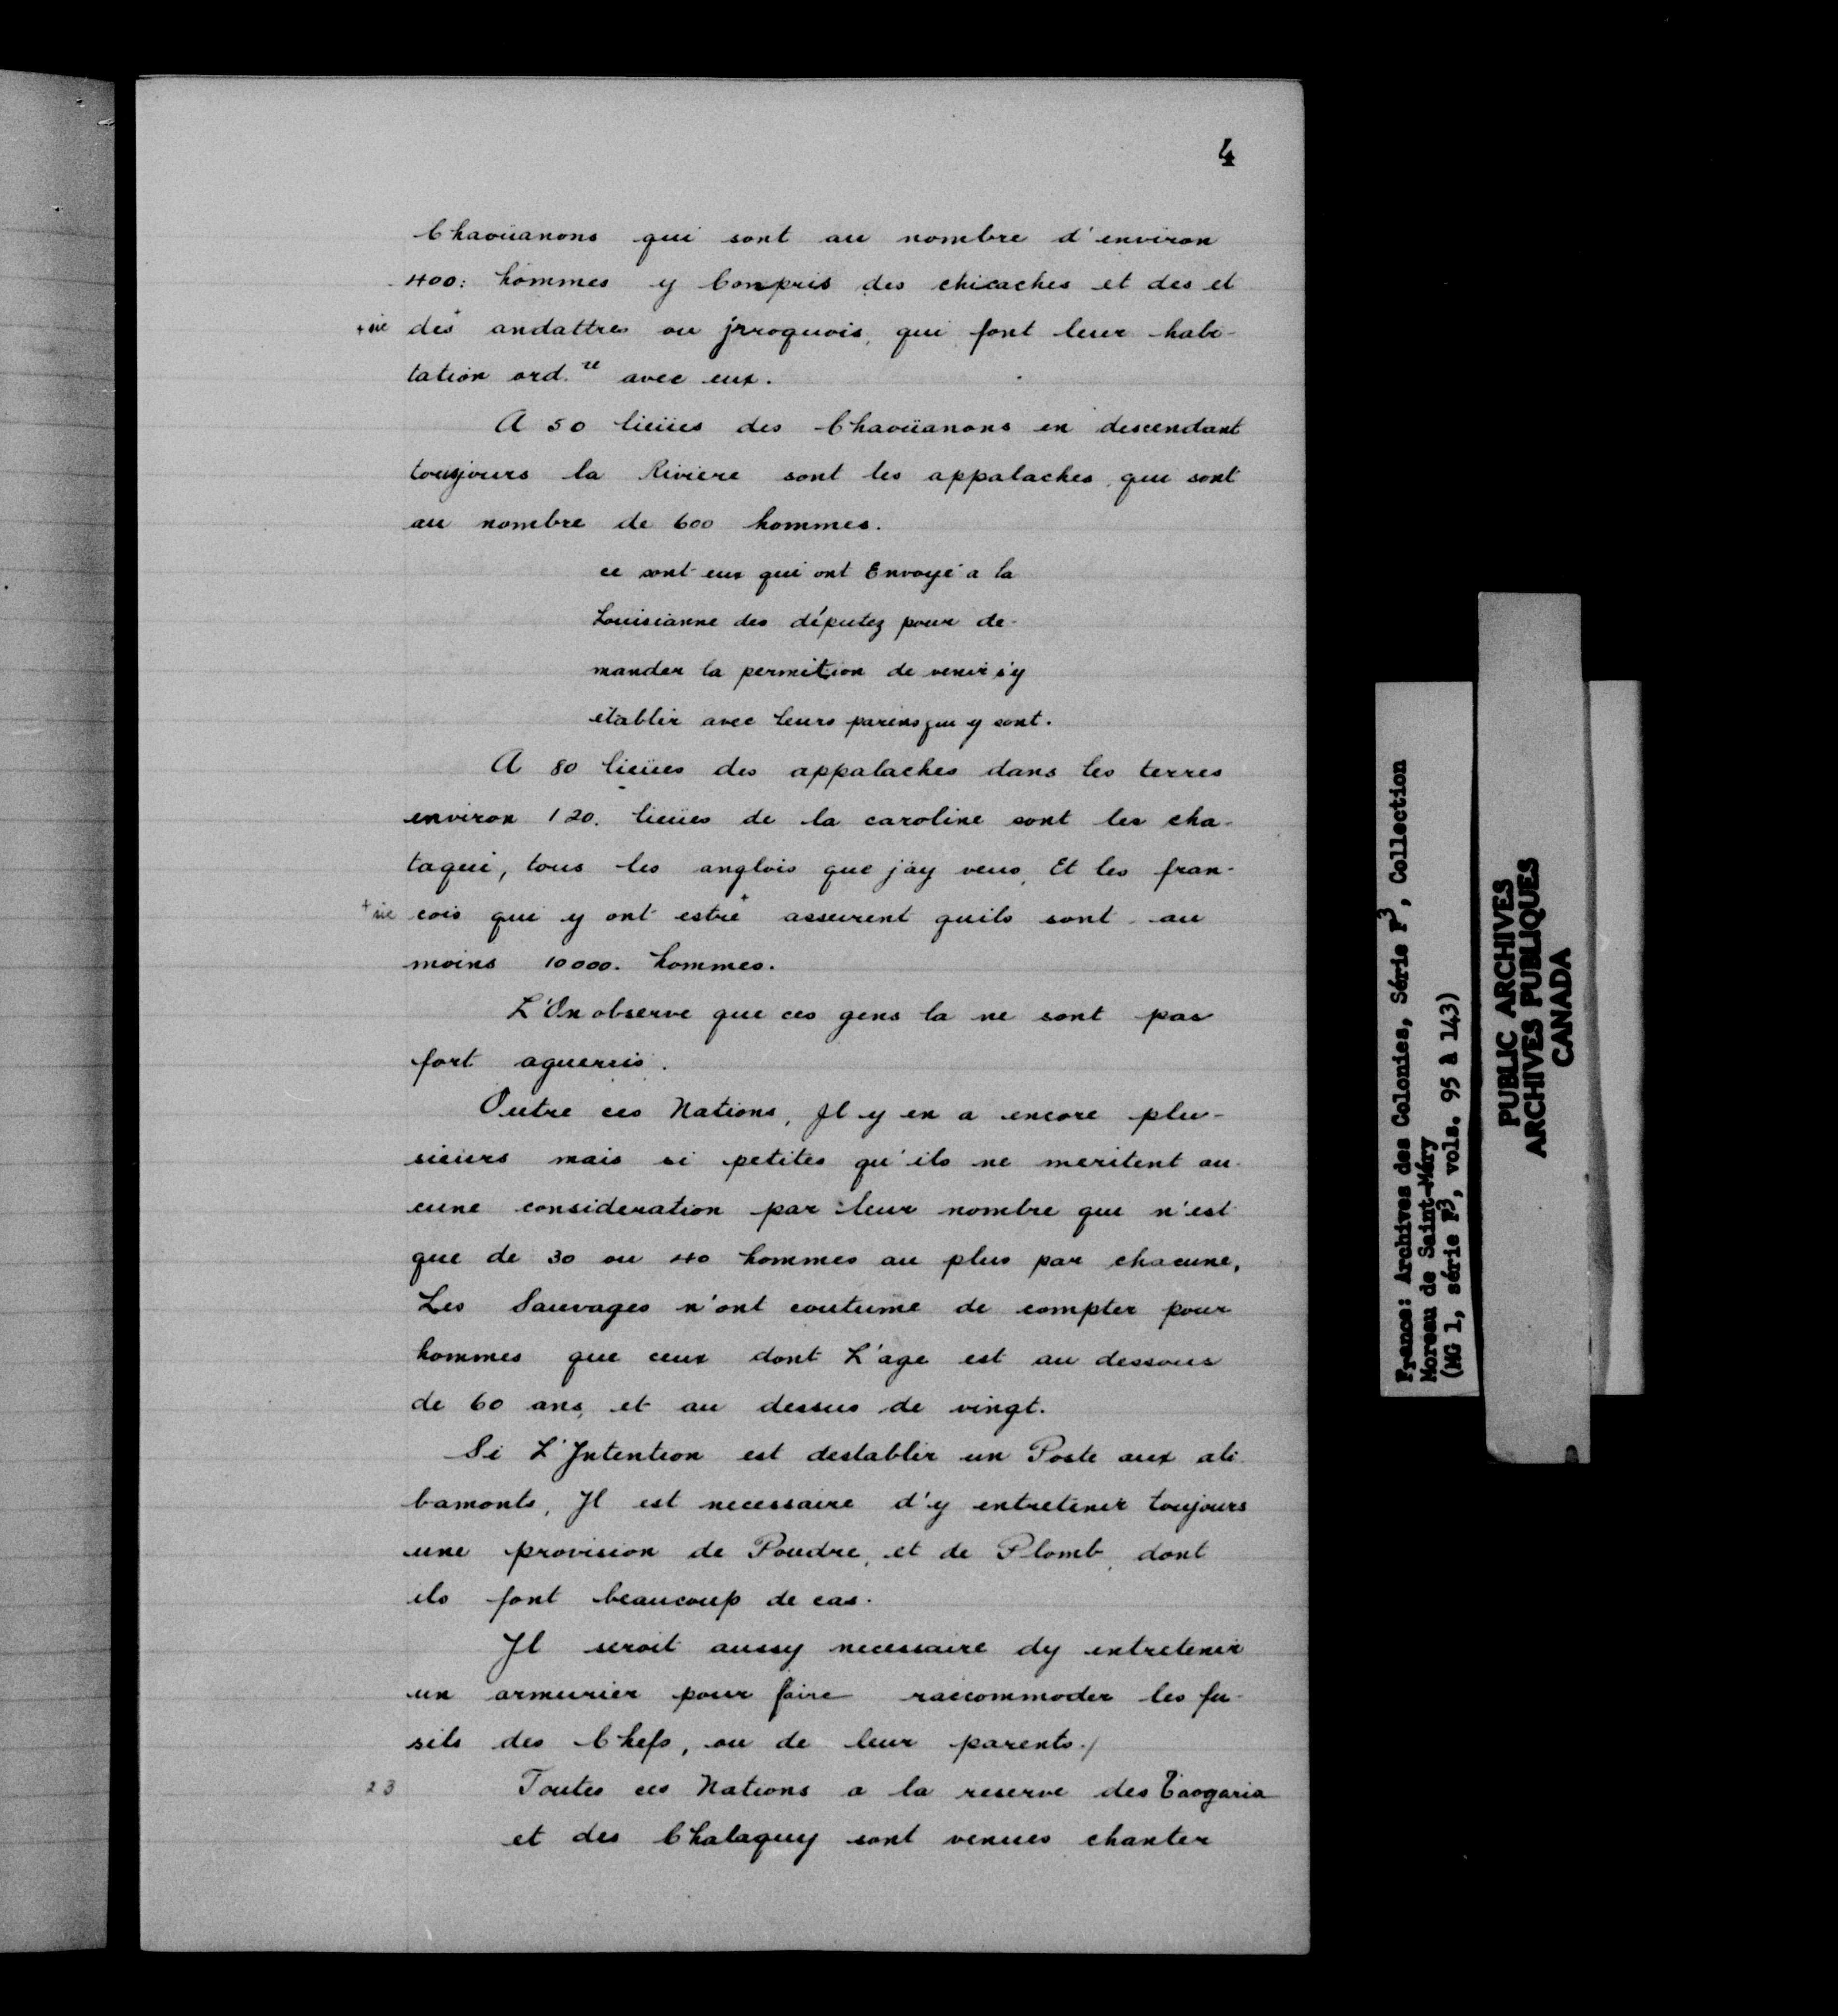 4
Chaoüanons qui sont au nombre d'environ
400: hommes y Compris des chicaches et des et
+ sic des+ andattres ou jrroquois, qui font leur habi-
tation ord.re avec eux.
A 50 lieües des Chaoüanons en descendant
tousjours la Riviere sont les appalaches, qui sont
au nombre de 600 hommes.
ce sont eux qui ont Envoyé a la
Louisianne des députez pour de-
mander la permition de venir s'y
établir avec leurs parens qui y sont.
A 80 lieües des appalaches dans les terres
environ 120. lieües de la caroline sont les cha-
taqui, tous les anglois que j'ay veus, Et les fran-
+ sic cois qui y ont estré+ asseurent quils sont au
moins 10000. hommes.
L'On observe que ces gens la ne sont pas
fort aguerris.
Outre ces Nations, Il y en a encore plu-
sieurs mais si petites qu'ils ne meritent au-
cune consideration par leur nombre qui n'est
que de 30 ou 40 hommes au plus par chacune,
Les Sauvages n'ont coutume de compter pour
hommes que ceux dont L'age est au dessous
de 60 ans, et au dessus de vingt.
Si L'Intention est destablir un Poste aux ali-
bamonts, Il est necessaire d'y entretenir toujours
une provision de Poudre, et de Plomb, dont
ils font beaucoup de cas.
Il seroit aussy necessaire dy entretenir
un armurier pour faire raccommoder les fu-
sils des Chefs, ou de leur parents./
23 Toutes ces Nations a la reserve des Taogaria
et des Chalaquy sont venues chanter
France: Archives des Colonies, Série F3, Collection
Moreau de Saint-Méry
(MG 1, série F3, vols. 95 à 143)
PUBLIC ARCHIVES
ARCHIVES PUBLIQUES
CANADA